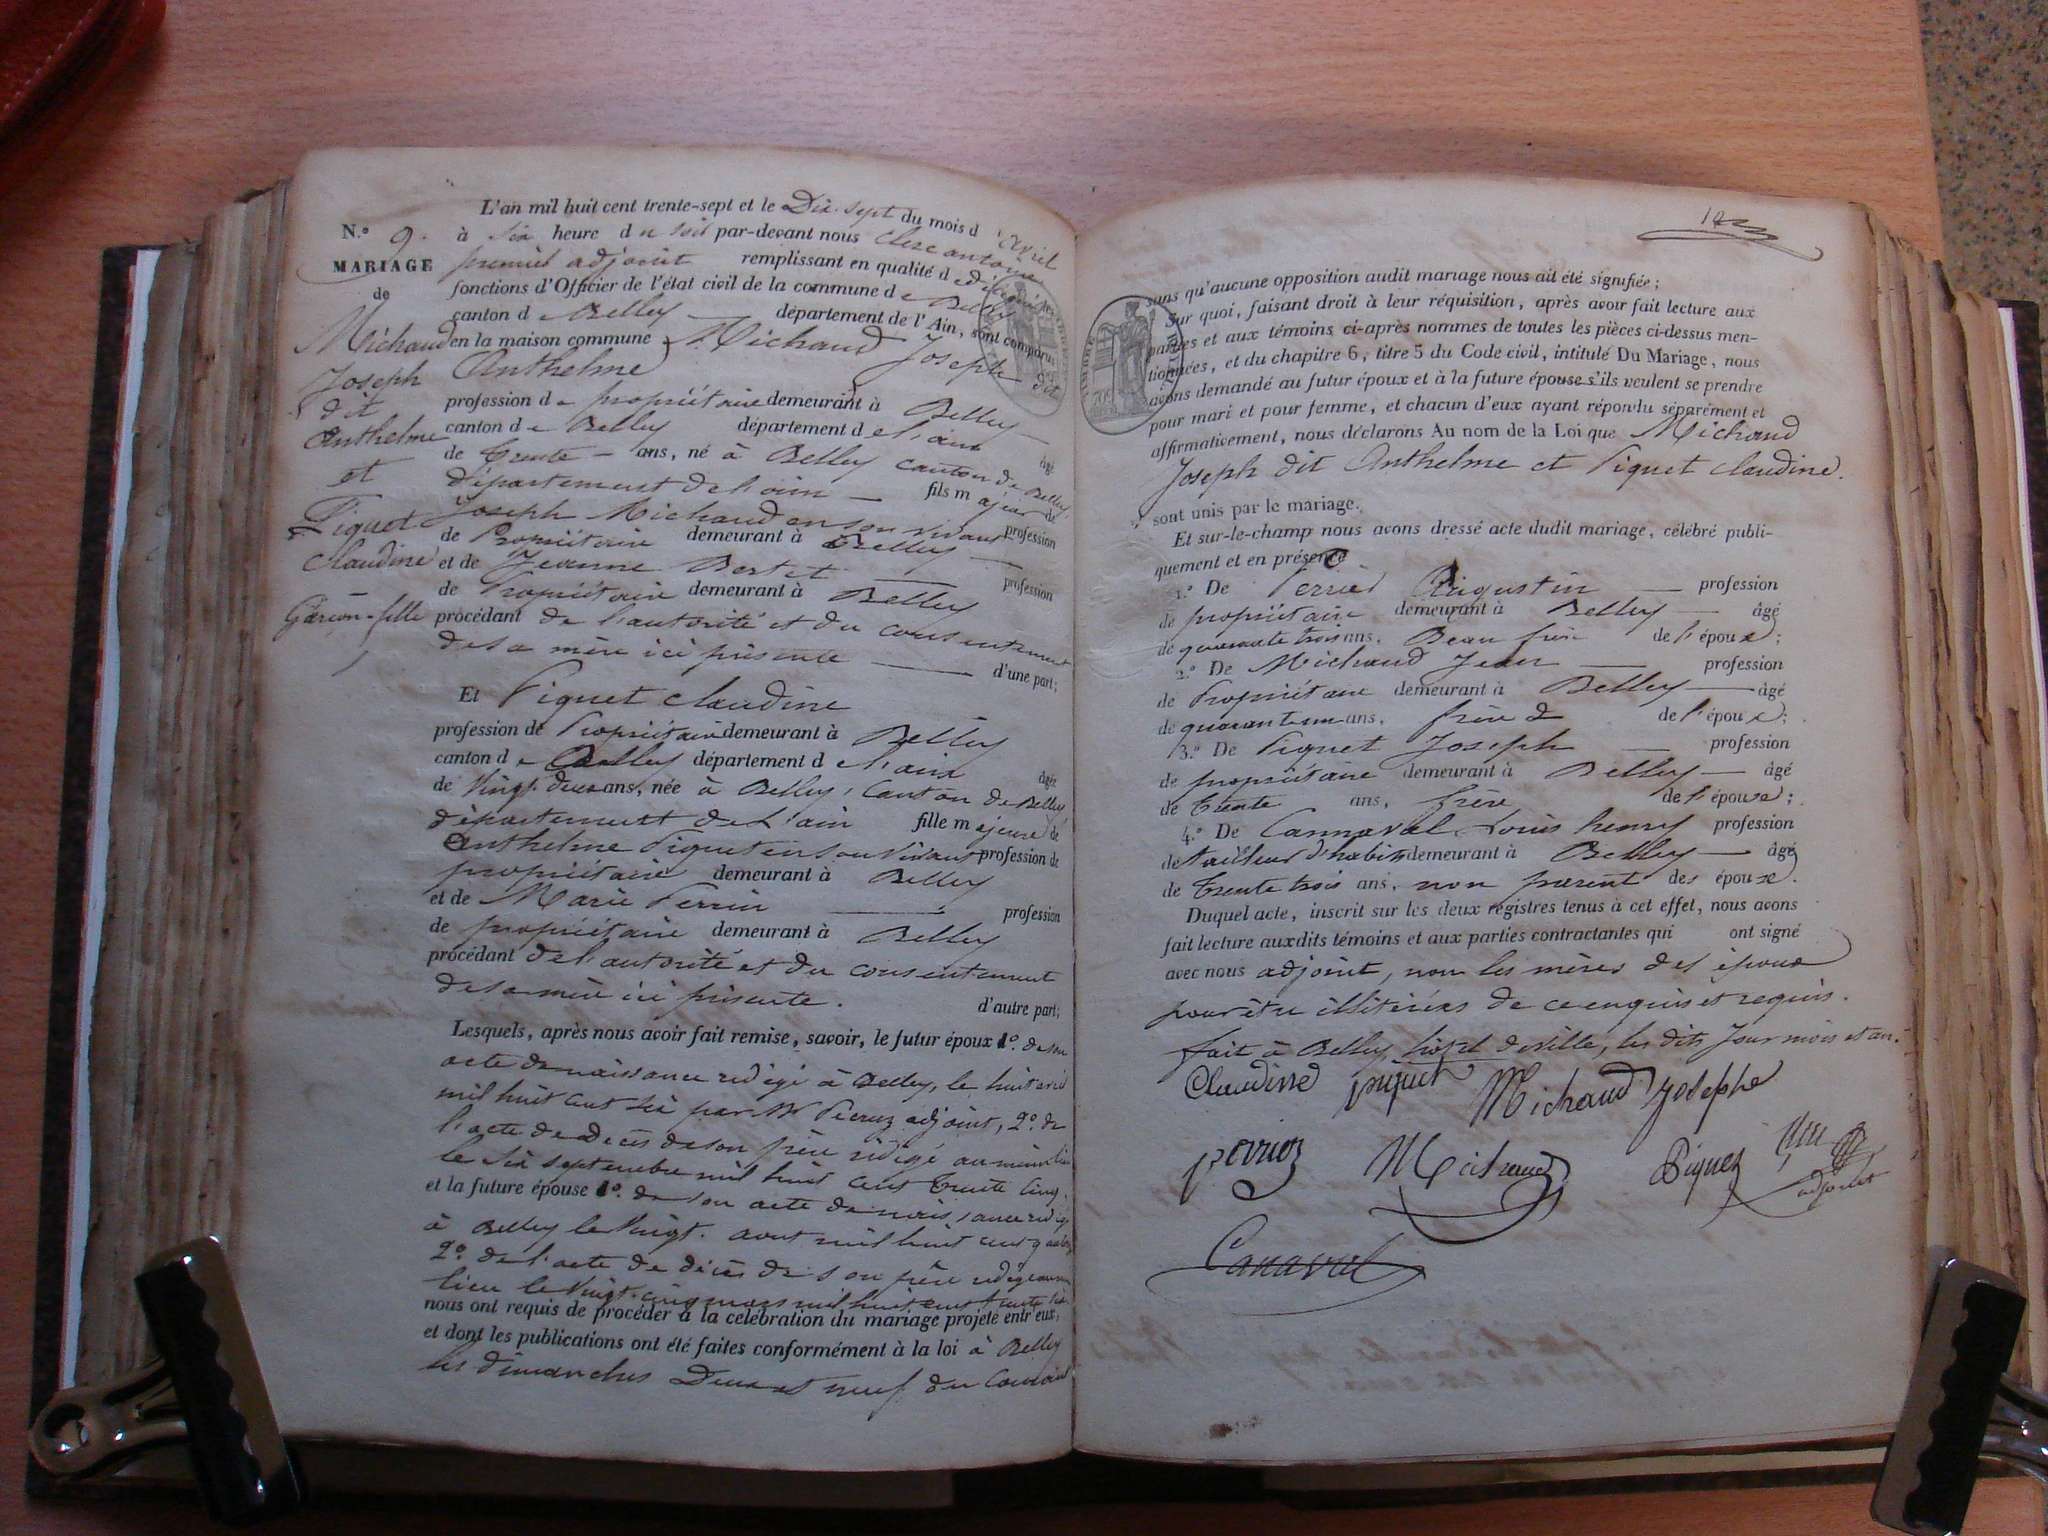 N.º 9.
MARIAGE
de
Michaud
Joseph
dit
Anthelme
et
Piquet
Claudine
Garçon-fille
L'an mil huit cent trente-sept et le Dix-sept du mois d'avril
à six heure du soir par-devant nous Clerc antoine
premier adjoint remplissant en qualité de
fonctions d'Officier de l'état civil de la commune de Belley
canton de Belley département de l'Ain, sont comparus
en la maison commune Michaud Joseph dit
Anthelme
profession de propriétaire demeurant à Belley
canton de Belley département de l'ain âgé
de trente ans, né à Belley canton de Belley,
département de l'ain fils majeur de
Joseph Michaud en son vivant profession
de Propriétaire demeurant à Belley
et de Jeanne Bertet profession
de Propriétaire demeurant à Belley
procédant de l'autorité et du consentement
de sa mère ici présente d'une part;
Et Piquet Claudine
profession de Propriétaire demeurant à Belley
canton de Belley département de l'ain âgée
de Vingt deux ans, née à Belley, Canton de Belley
département de L'ain fille majeure de
Anthelme Piquet en son vivant profession de
propriétaire demeurant à Belley
et de Marie Perrin profession
de propriétaire demeurant à Belley
procédant de l'autorité et du consentement
de sa mère ici présente. d'autre part;
Lesquels, après nous avoir fait remise, savoir, le futur époux 1º. de son
acte de naissance rédigé à Belley, le huit avril
mil huit cent six par Mr adjoint, 2º. de
l'acte de décès de son père rédigé au même lieu
le six septembre mil huit cent trente cinq,
et la future épouse 1º. de son acte de naissance rédigé
à Belley le Vingt. aout mil huit cent quatorze
2º. de l'acte de décès de son père rédigé au même
lieu le Vingt-cinq mars mil huit cent trente six
nous ont requis de procéder à la célébration du mariage projeté entr'eux,
et dont les publications ont été faites conformément à la loi à Belley
les dimanches Deux et neuf du Courant
sans qu'aucune opposition audit mariage nous ait été signifiée;
Sur quoi, faisant droit à leur réquisition, après avoir fait lecture aux
parties et aux témoins ci-après nommés de toutes les pièces ci-dessus men-
tionnées, et du chapitre 6, titre 5 du Code civil, intitulé Du Mariage, nous
avons demandé au futur époux et à la future épouse s'ils veulent se prendre
pour mari et pour femme, et chacun d'eux ayant répondu séparément et
affirmativement, nous déclarons Au nom de la Loi que Michaud
Joseph dit Anthelme et Piquet Claudine.
sont unis par le mariage.
Et sur-le-champ nous avons dressé acte dudit mariage, célébré publi-
quement et en présence
1.º De Perrier Augustin profession
de propriétaire demeurant à Belley âgé
de quarante trois ans, Beau frère de l'époux;
2.º De Michaud Jean profession
de Propriétaire demeurant à Belley âgé
de quarante un ans, frère de l'époux;
3.º De Piquet Joseph profession
de propriétaire demeurant à Belley âgé
de trente ans, frère de l'épouse;
4.º De Cannaval Louis henry profession
de tailleur d'habits demeurant à Belley âgé
de trente trois ans, non parent des époux.
Duquel acte, inscrit sur les deux registres tenus à cet effet, nous avons
fait lecture auxdits témoins et aux parties contractantes qui ont signé
avec nous adjoint, non les mères des époux
pour être illitérées de ce enquis et requis.
fait à Belley, hôtel de ville, les dits Jour mois et an.
Claudine piquet Michaud Josephe
perrier Michaud Piquet
adjoint
Canaval